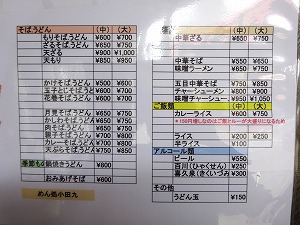 そばうどん (中) (大)
もりそばうどん ¥600 ¥700
ざるそばうどん ¥650 ¥750
天ざる ¥900 ¥1,000
天もり ¥850 ¥950
かけそばうどん ¥600 ¥700
玉子とじそばうどん
花巻そばうどん
月見そばうどん
かしわそばうどん
肉そばうどん
カレーそばうどん
天ぷらそばうどん
季節もの 鍋焼きうどん ¥800
おみあげそば ¥600
めん処小田九
(中) (大)
中華ざる ¥650 ¥750
中華そば ¥550 ¥650
味噌ラーメン ¥650 ¥750
五目中華そば ¥650 ¥750
チャーシューメン ¥800 ¥900
味噌チャーシュー ¥950 ¥1,050
ご飯類 (中) (大)
カレーライス ¥600 ¥750
*150円増しなのはご飯とルーが大盛りになるため
ライス ¥200 ¥250
半ライス ¥100
アルコール類
ビール ¥550
百川(ひゃくせん) ¥300
喜久泉(きくいづみ) ¥300
その他
うどん玉 ¥150